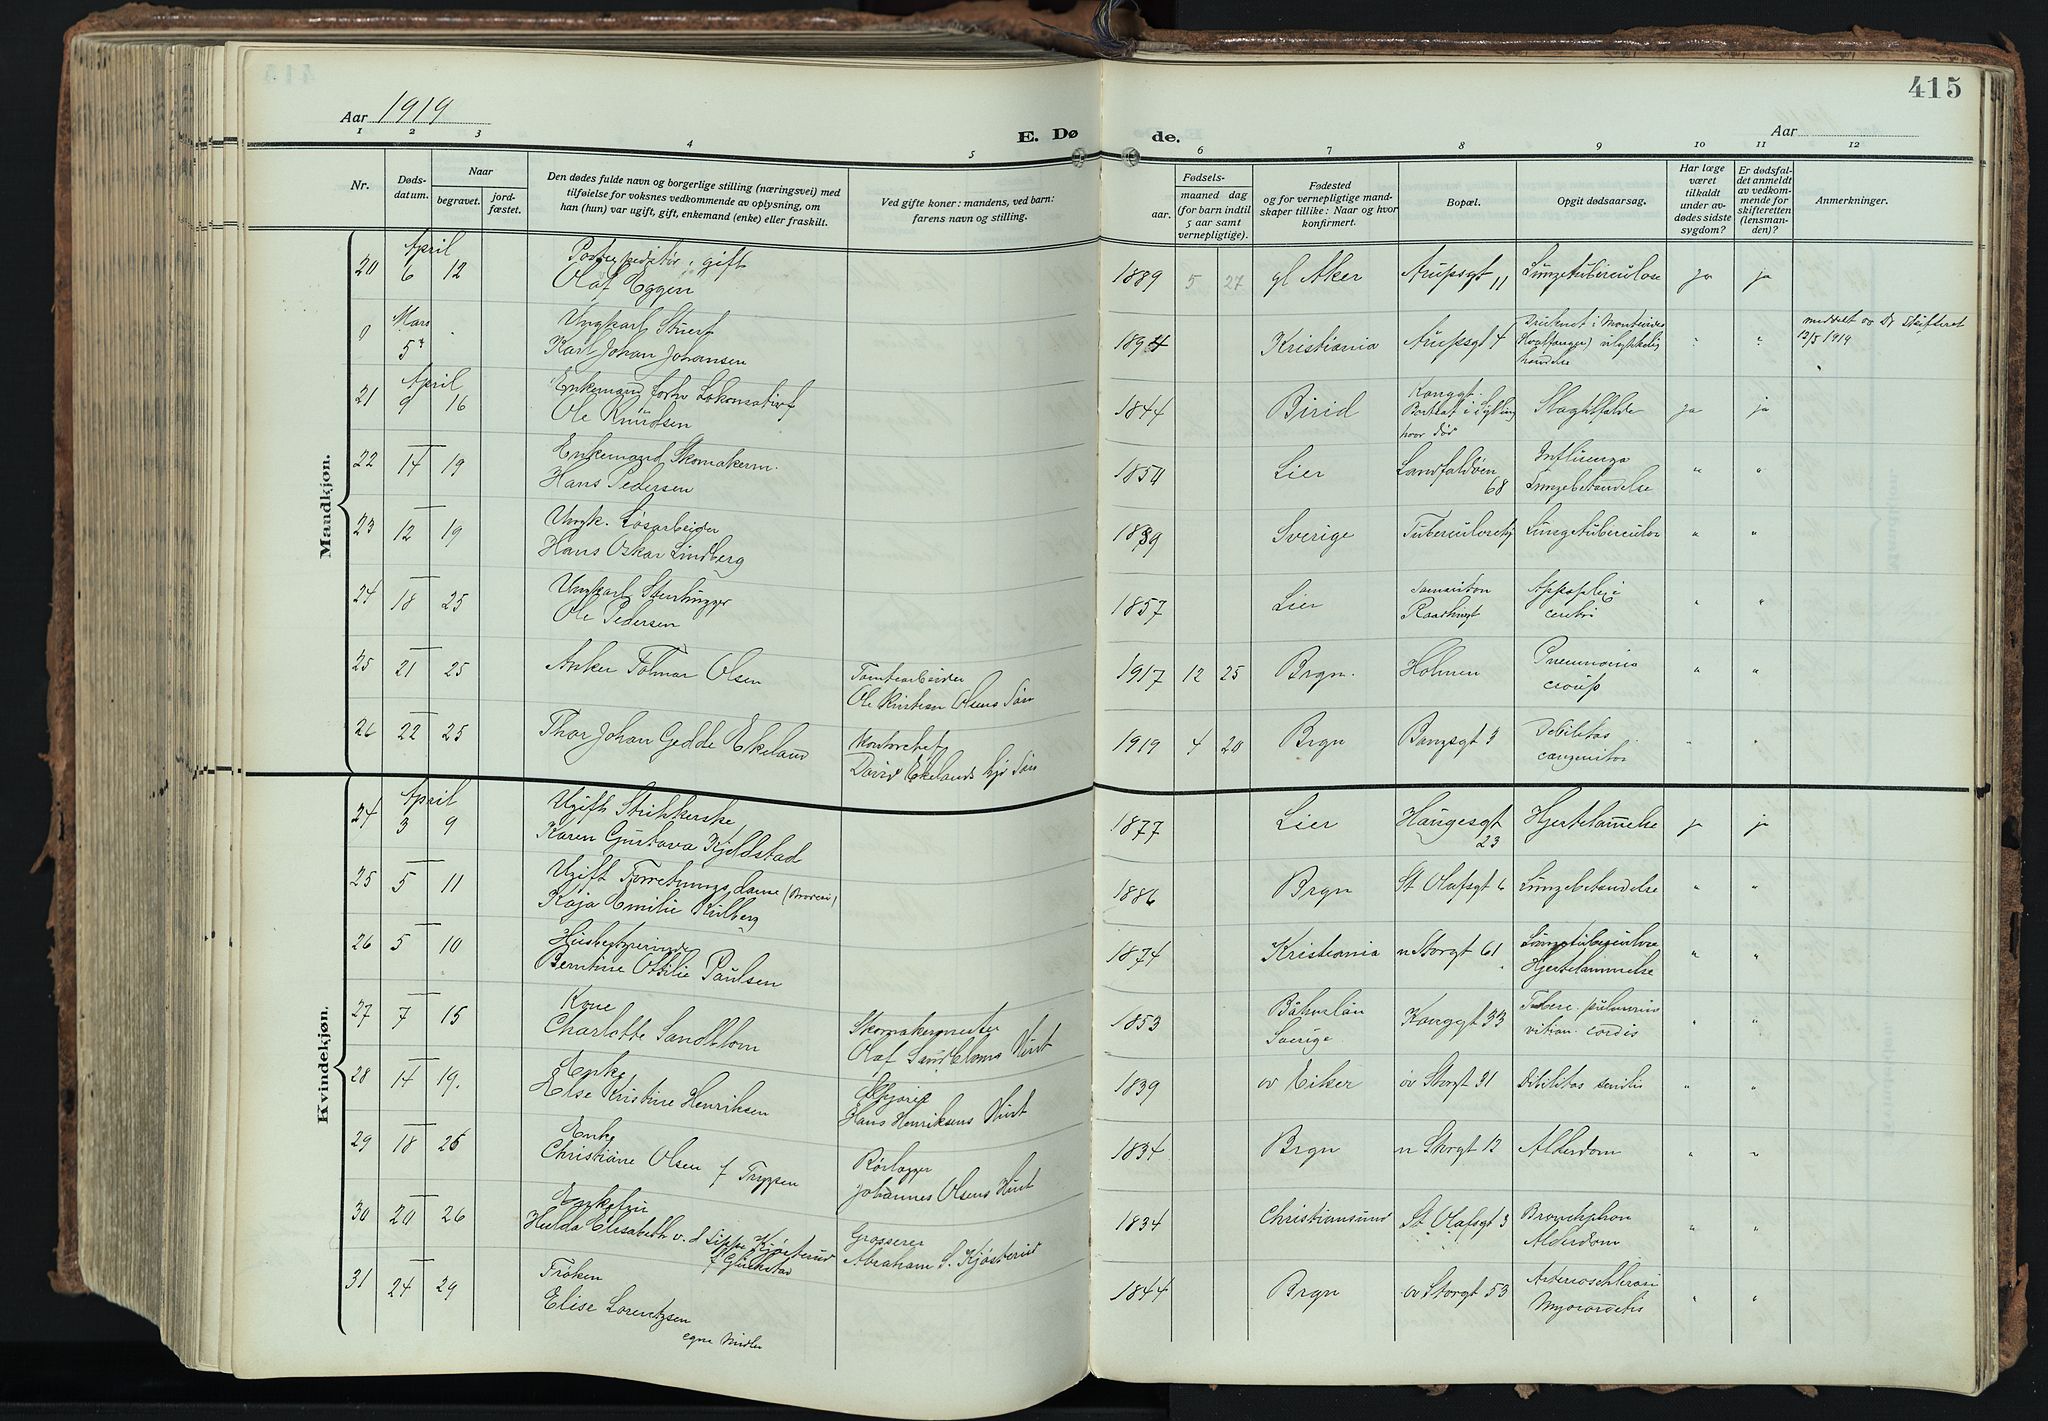 415
Aar 1919
E. Dø de.
Aar
1 2 3 4 5 6 7 8 9 10 11 12
Nr.
Døds-
datum.
Naar
begravet.
jord-
fæstet.
Den dødes fulde navn og borgerlige stilling (næringsvei) med
tilføielse for voksnes vedkommende av oplysning, om
han (hun) var ugift, gift, enkemand (enke) eller fraskilt.
Ved gifte koner: mandens, ved barn:
farens navn og stilling.
Fødsels-
aar.
maaned dag
(for barn indtil
5 aar samt
vernepligtige).
Fødested
og for vernepligtige mand-
skaper tillike: Naar og hvor
konfirmert.
Bopæl.
Opgit dødsaarsag.
Har læge
været
tilkaldt
under av-
dødes sidste
sygdom?
Er dødsfal-
det anmeldt
av vedkom-
mende for
skifteretten
(lensman-
den)?
Anmerkninger.
Mandkjøn.
April
20 6 12 gift
Olaf Eggen
1889 5 27 gl Aker Arupsgt 11 Lungetuberculose ja ja
Mars
5
Ungkarl Stuert
Karl Johan Johansen
1894 Kristiania Arupsgt 4
hændelse
12/5 1919
April
21 9 16 Enkemand forhv
Ole Knudsen
1844 Birid Konggt.
hvor død
Slagtilfælde ja ja
22 14 19 Enkemand Skomakerm.
Hans Pedersen
1854 Lier Landfaldøen
68
Influenza
Lungebetændelse " "
23 12 19 Ungk. Løsarbeider
Hans Oskar Lindberg
1889 Sverige Lungetuberculose " "
24 18 25 Ungkarl Stenhugger
Ole Pedersen
1857 Lier
Appoplexi
cerebri " "
25 21 25 Anker Tolmar Olsen
Tomtearbeider
Ole Kristian Olsens Søn
1917 12 25 Brgn. Holmen Pneumonia
croup " "
26 22 25 Thor Johan Gedde Ekeland
Kontorchef
David Ekelands Søn
1919 4 20 Brgn Debilitas
congenitas " "
Kvindekjøn.
April
24 3 9 Ugift Strikkerske
Karen Gustava Kjeldstad
1877 Lier Haugesgt
23
Hjertelammelse ja ja
25 5 11 Ugift Forretningsdame
Kaja Emilie Kulberg
1886 Brgn St Olafsgt 6 Lungebetændelse " "
26 5 10 Husbestyrerinde
Berntine Ottilie Paulsen
1874 Kristiania n Storgt 61 Lungetuberculose
Hjertelammelse " "
27 7 15 Kone
Charlotte Sandblom
Skomakermester
Olaf Sandbloms Hust
1853 Båhuslän
Sverige
Konggt 33
vitium cordis " "
28 14 19. Enke
Else Kristine Henriksen
Hans Henriksens Hust
1839 øv Eiker øv Storgt 31 Debilitas senilis " "
29 18 25 Enke
Christiane Olsen
Rørlægger
Johannes Olsens Hust
1834 Brgn n Storgt 12 Alderdom " "
30 20 26 Enkefru
Hulda Elisabeth v. d Lippe Kjøsterud
f Gluckstad
Grosserer
Abraham S. Kjøsterud
1834 Christiansund St Olafsgt 3
Alderdom " "
31 24 29 Frøken
Elise Lorentzsen
egne Midler
1844 Brgn øv Storgt 53
Myocarditis " "